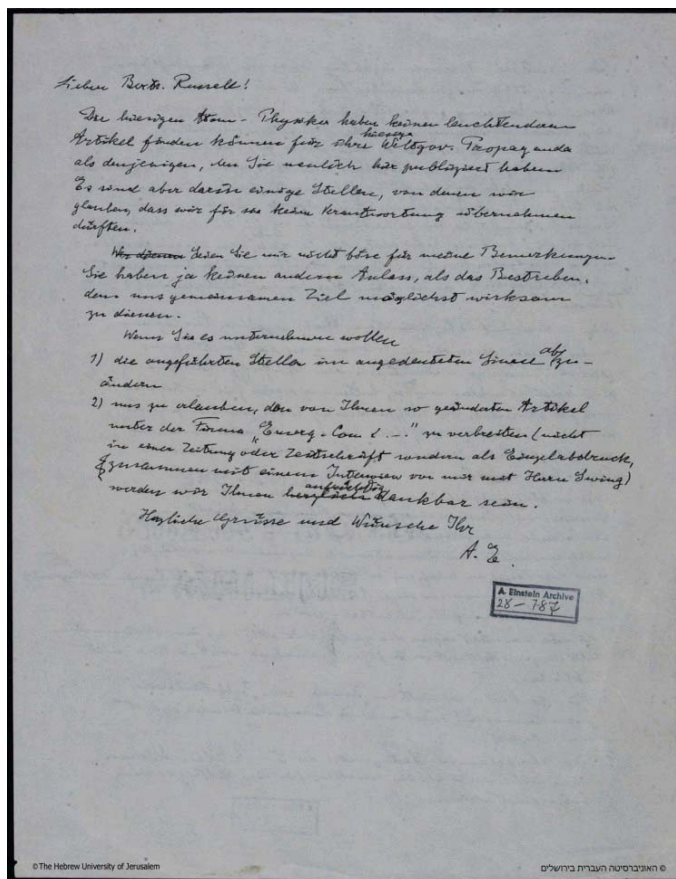 Lieber Bertr. Russell!
Die hiesigen Atom-Physiker haben keinen leuchtenderen
hiesige
Artikel finden können für ihre Weltgov. Propaganda
als denjenigen, den Sie neulich hier publiziert haben
Es sind aber darin einige Stellen, von denen wir
glauben, dass wir für sie keine Verantwortung übernehmen
dürften.
Seien Sie mir nicht böse für meine Bemerkungen.
Sie haben ja keinen andern Anlass, als das Bestreben,
dem uns gemeinsamen Ziel möglichst wirksam
zu dienen.
Wenn Sie es unternehmen wollen
1) die angeführten Stellen im angedeuteten Sinne abzu-
ändern
2) uns zu erlauben, den von Ihnen so geänderten Artikel
unter der Firma "Emerg. Com" zu verbreiten (nicht
in einer Zeitung oder Zeitschrift sondern als Einzelabdruck,
zusammen mit einem Interview von mir mit Herrn Swing)
aufrichtig
werden wir Ihnen herzlich dankbar sein.
Herzliche Grüsse und Wünsche Ihr
A. E.
A. Einstein Archive
28-787
© The Hebrew University of Jerusalem
© האוניברסיטה העברית בירושלים